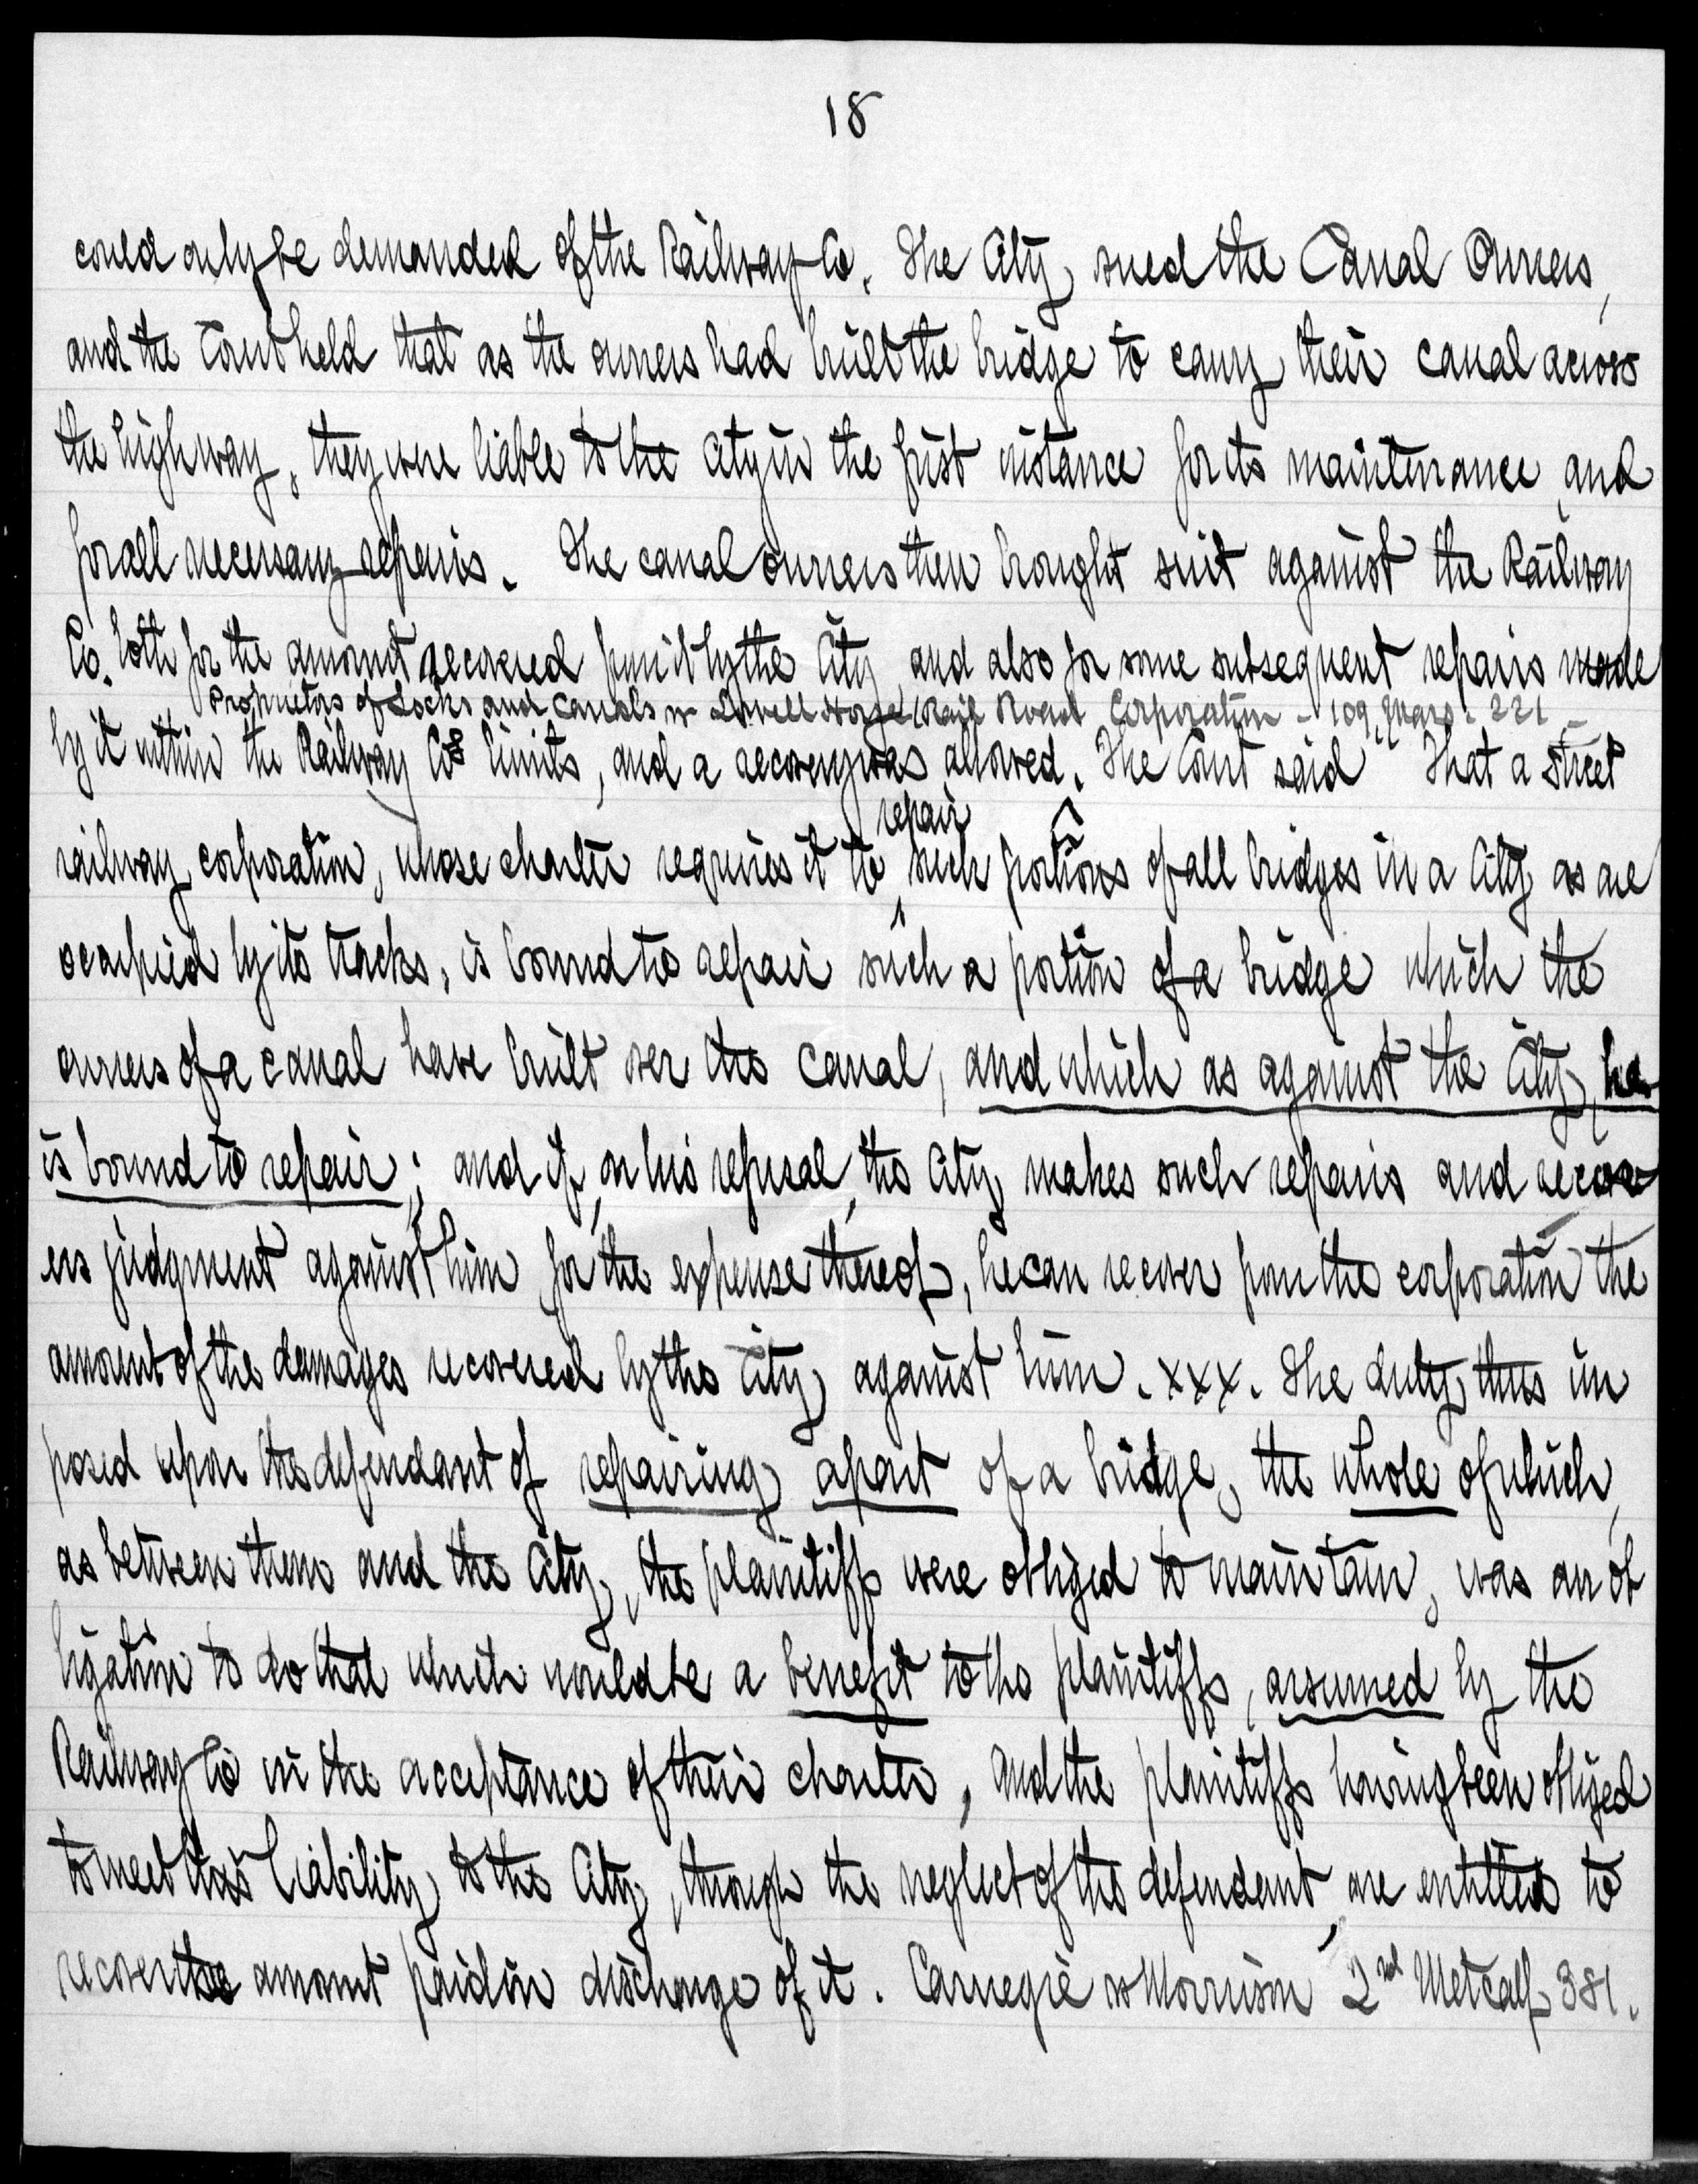 18
could only be demanded of the Railway Co. The City sued the Canal Owners,
and the Court held that as the owners had built the bridge to carry their canal across
the highway, they were liable to the City in the first instance for its maintenance and
for all necessary repairs. The canal owners then brought suit against the Railway
Co. both for the amount recovered from it by the City and also for some subsequent repairs made
Proprietors of Locks and Canals vs Lowell Horse Rail Road Corporation - 109 Mass. 221 -
by it within the Railway Cos limits, and a recovery was allowed. The Court said "That a street
repair
railway corporation, whose charter requires it to such portions of all bridges in a City as are
occupied by its tracks, is bound to repair such a portion of a bridge which the
owners of a canal have built over the canal, and which as against the City, he
is bound to repair; and if, on his refusal, the City makes such repairs and recov-
ers judgment against him for the expense thereof, he can recover from the corporation the
amount of the damages recovered by the City against him. xxx. The duty thus im
posed upon the defendant of repairing a part of a bridge, the whole of which,
as between them and the City, the plaintiffs were obliged to maintain, was an ob
ligation to do that which would be a benefit to the plaintiffs, assumed by the
Railway Co in the acceptance of their charter, and the plaintiffs having been obliged
to meet this liability to the City, through the neglect of the defendant, are entitled to
recover the amount paid in discharge of it. Carnegie vs Morrison 2nd Metcalf 381.